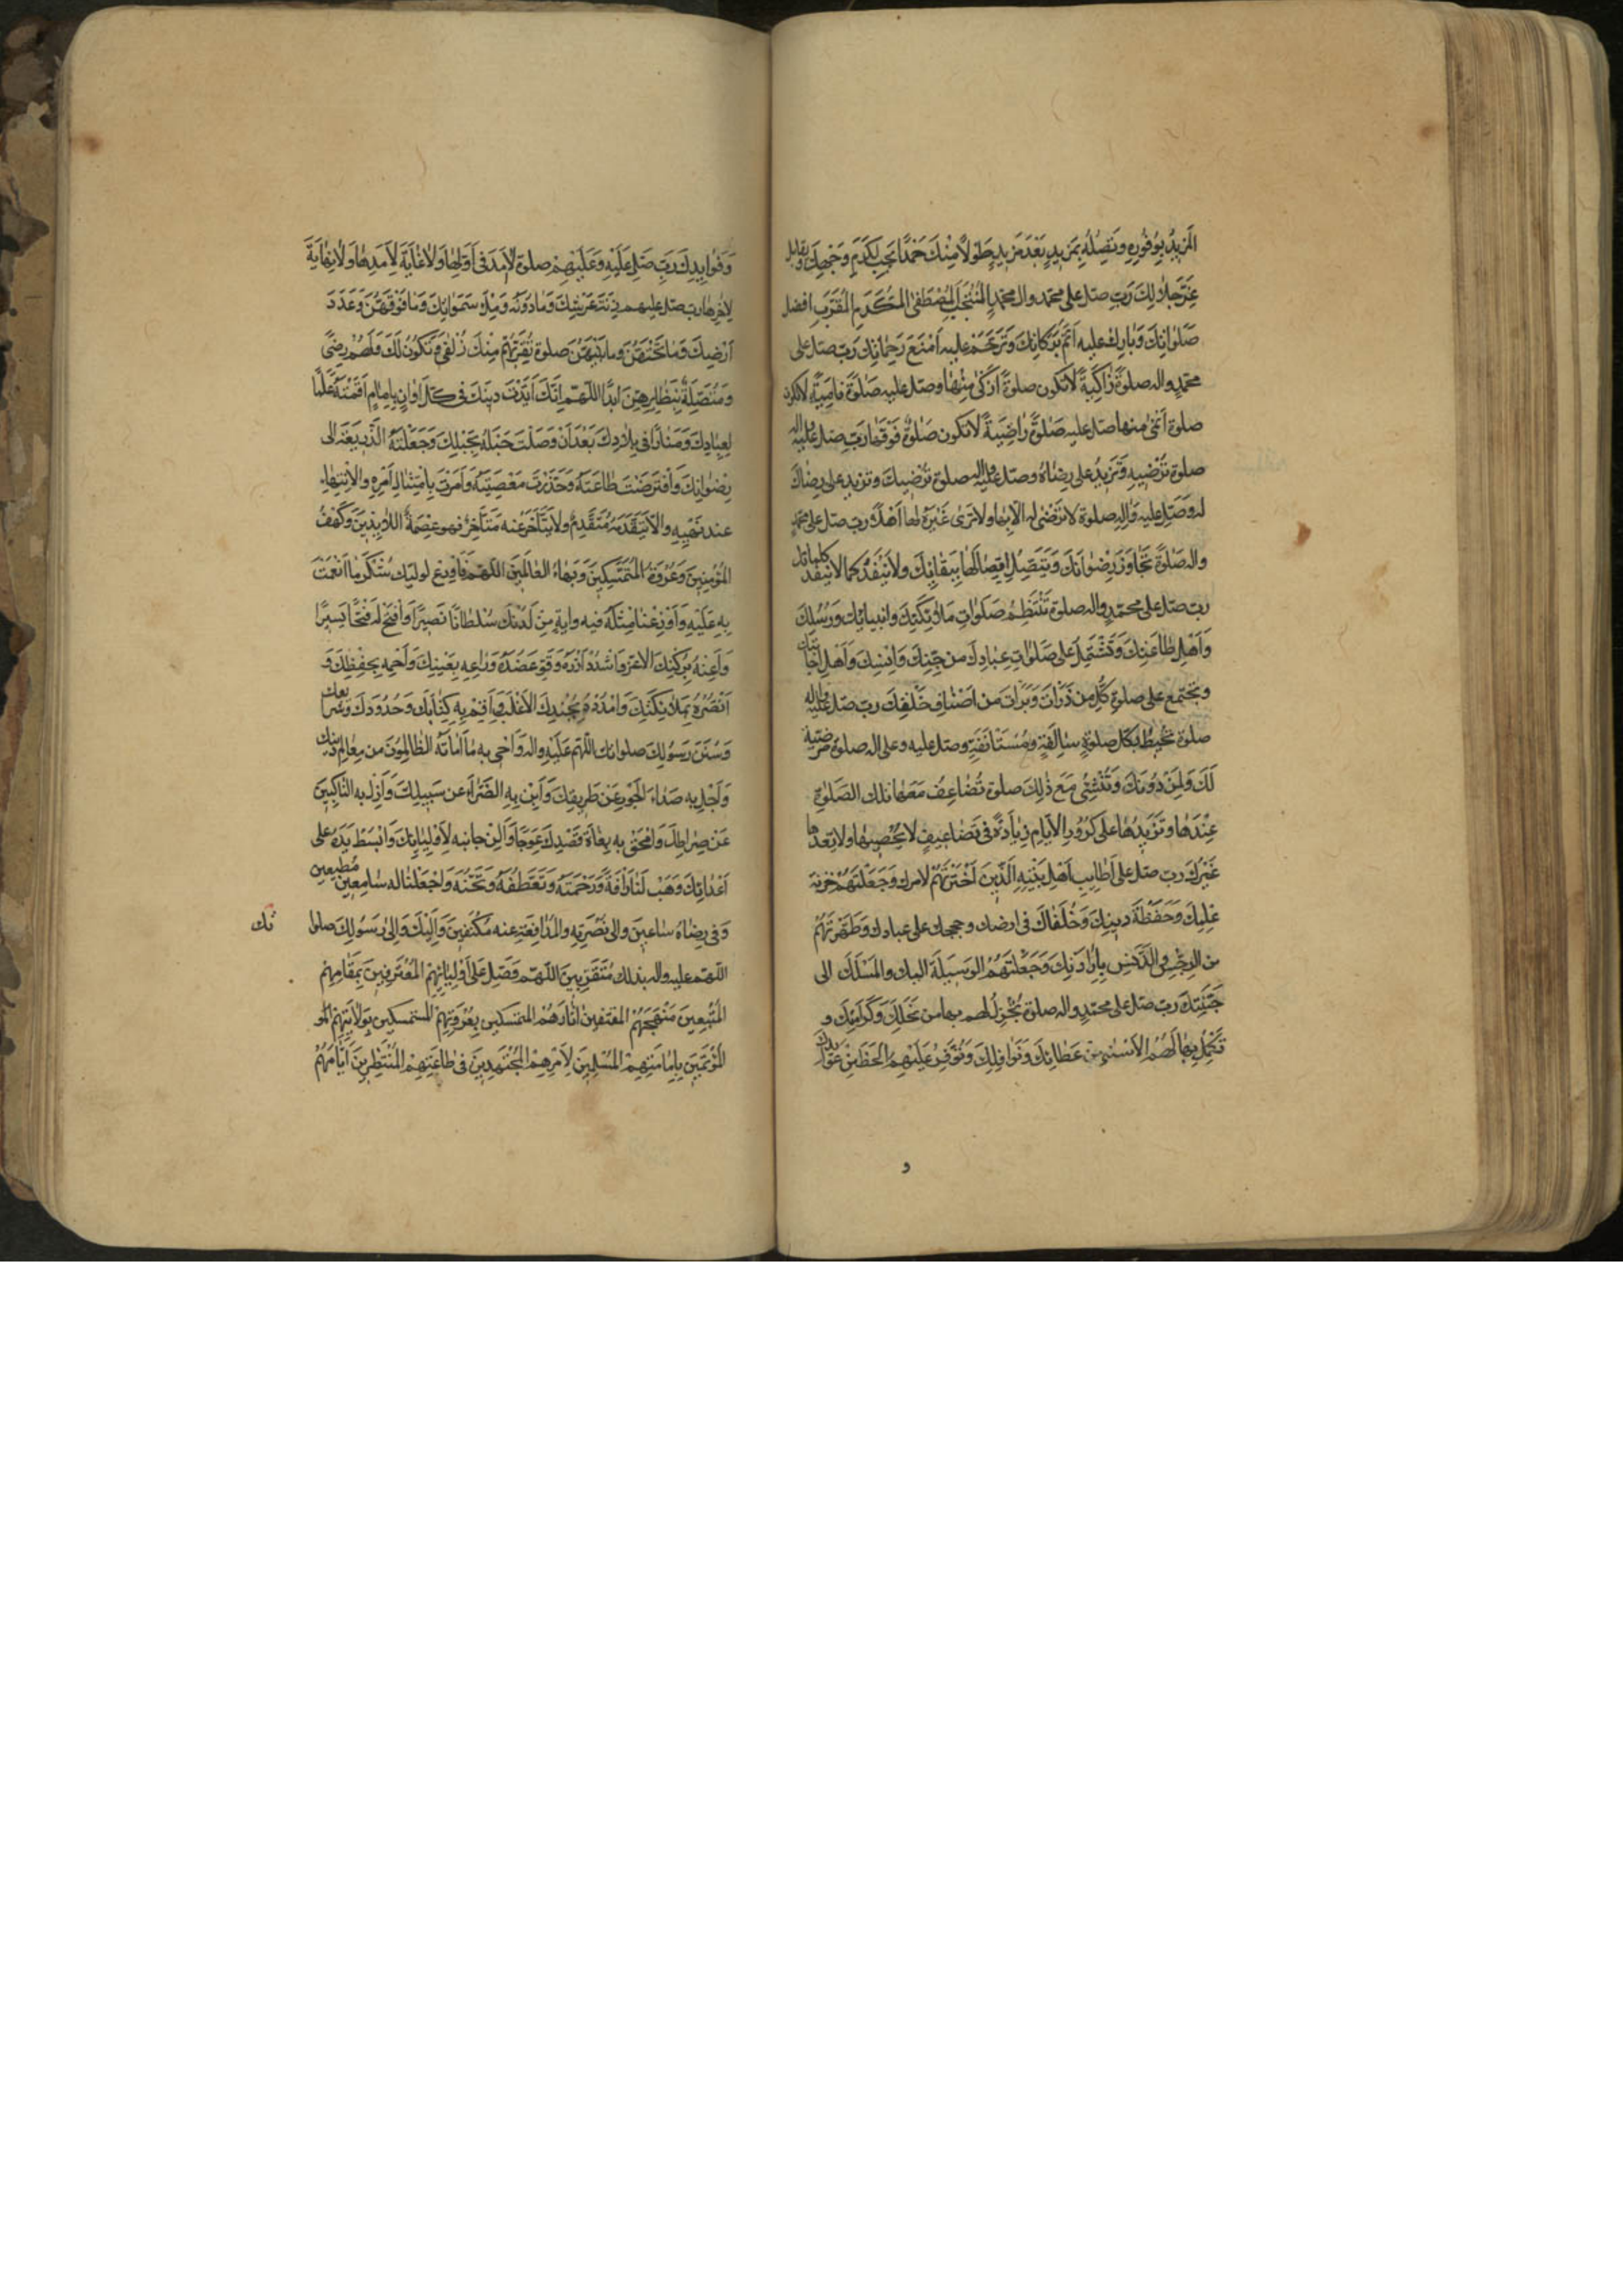 اَلْمَزِيدَ بِوُفُورِهِ وَتَصِلُهُ بِمَزِيدٍ بَعْدَ مَزِيدٍ طَوْلًا مِنْكَ حَمْدًا يَجِبُ لِكَرَمِ وَجْهِكَ وَيُقَابِلُ
عِزَّ جَلَالِكَ رَبِّ صَلِّ على محمد وال محمد اِلْمُنْتَجَبِ الْمُصْطَفَى الْمُكَرَّمِ الْمُقَرَّبِ افضل
صَلَوَاتِكَ وَبَارِكْ عليه اَتَمَّ بَرَكَاتِكَ وَتَرَحَّمْ عليه اَمْتَعَ رَحَمَاتِكَ رَبِّ صلّ على
محمد واله صلوة زَاكِيَةً لَا تكون صلوة اَزْكَى مِنْهَا وصل عليه صَلٰوةً نَامِيَةً لا تكون
صلوة اَنْمٰى منها صل عليه صَلٰوةً رَاضِيَةً لا تكون صَلٰوةٌ فَوْقَهَا رَبِّ صل عليه واله
صلوة تُرْضِيهِ وَتَزِيدُ على رِضَاهُ وصل عليه واله صلوة تُرْضِيكَ وتزيد على رِضَاكَ
له وَصَلِّ عليه وَالِهِ صلوة لا تَرْضٰى له الّا بِهَا ولا تَرٰى غَيْرَهُ لها اَهْلًا رب صل على محمد
واله صَلٰوةً تُجَاوِزُ رِضْوَانَكَ وَيَتَّصِلُ اتِّصَالُهَا بِبَقَائِكَ وَلَا يَنْفَدُ كما لا تنفد كلماتك
رب صل على محمد واله صلوة تَنْتَظِمُ صَلَوَاتِ مَلَائِكَتِكَ وانبيائك وَرُسُلِكَ
وَاَهْلِ طَاعَتِكَ وَتَشْتَمِلُ عَلى صَلَوَاتِ عِبَادِكَ من جِنِّكَ وَاِنْسِكَ وَاَهْلِ اِجَابَتِكَ
وتجتمع على صلوة كُلِّ من ذَرَأْتَ وَبَرَأْتَ من اَصْنَافِ خَلْقِكَ رب صل عليه واله
صلوة تُحِيطُ بكل صلوة سَالِفَةٍ وَمُسْتَأْنَفَةٍ وصل عليه وعلى اله صلوة مرضية
لَكَ وَلِمَنْ دُونَكَ وَتُنْشِئُ مَعَ ذٰلِكَ صلوة تُضَاعِفُ مَعَهَا تلك الصَّلَوَاتِ
عِنْدَهَا وَتَزِيدُهَا عَلَى كُرُورِ الْاَيَّامِ زِيَادَةً فى تَضَاعِيفَ لا يُحْصِيهَا ولا يَعُدُّها
غَيْرُكَ رب صل على اَطَائِبِ اَهْلِ بَيْتِهِ الَّذِينَ اخْتَرْتَهُمْ لامرك وَجَعَلْتَهُمْ خزنة
عِلْمِكَ وَحَفَظَةَ دِينِكَ وَخُلَفَاءَكَ فى ارضك وحججك على عبادك وَطَهَّرْتَهُمْ
من الرِّجْسِ وَالدَّنَسِ بِاِرَادَتِكَ وَجَعَلْتَهُمُ الْوَسِيلَةَ اليك والْمَسْلَكَ الى
جَنَّتِكَ رب صل على محمد واله صلوة تُجْزِلُ لهم بها من نُحْلِكَ وَكَرَامَتِكَ و
تُكْمِلُ بِهَا لَهُمُ الْاَسْنٰى مِنْ عَطَائِكَ وَنَوَافِلِكَ وَتُوَفِّرُ عَلَيْهِمُ الْحَظَّ مِنْ عَوَائِدِكَ
و
وَفَوَايِدِكَ رَبِّ صَلِّ عَلَيْهِ وَعَلَيْهِمْ صلوة لَا اَمَدَ فى اَوَّلِهَا وَلَا غَايَةَ لِاَمَدِهَا وَلَا نِهَايَةَ
لِاٰخِرِهَا رب صل عليهم زِنَةَ عَرْشِكَ وَمَا دُونَهُ وَمِلْأَ سَمٰوَاتِكَ وَمَا فَوْقَهُنَّ وَعَدَدَ
اَرْضِيكَ وَمَا تَحْتَهُنَّ وما بَيْنَهُنَّ صلوة تُقَرِّبُهُمْ مِنْكَ زُلْفٰى وَتَكُونُ لَكَ وَلَهُمْ رِضًى
وَمُتَّصِلَةً بِنَظَايِرِهِنَّ اَبَدًا اللّٰهم اِنَّكَ اَيَّدْتَ دِينَكَ فى كل اَوَانٍ بِاِمَامٍ اَقَمْتَهُ عَلَمًا
لِعِبَادِكَ وَمَنَارًا فى بِلَادِكَ بَعْدَ اَنْ وَصَلْتَ حَبْلَهُ بِحَبْلِكَ وَجَعَلْتَهُ الذَّرِيعَةَ الى
رِضْوَانِكَ وَافْتَرَضْتَ طَاعَتَهُ وَحَذَّرْتَ مَعْصِيَتَهُ وَاَمَرْتَ بِامْتِثَالِ اَمْرِهِ وَالِانْتِهَاءِ
عند نَهْيِهِ والّا يَتَقَدَّمَهُ مُتَقَدِّمٌ ولا يَتَأَخَّرَ عنه مُتَأَخِّرٌ فهو عِصْمَةُ اللَّايِذِينَ وَكَهْفُ
الْمُؤْمِنِينَ وَعُرْوَةُ الْمُتَمَسِّكِينَ وَبَهَاءُ الْعَالَمِينَ اللهم فَاَوْزِعْ لوليك شُكْرَ مَا اَنْعَمْتَ
بِهِ عَلَيْهِ وَاَوْزِعْنَا مِثْلَهُ فيه واٰتِهِ مِنْ لَدُنْكَ سُلْطَانًا نَصِيرًا وَافْتَحْ لَهُ فَتْحًا يَسِيرًا
وَاَعِنْهُ بِرُكْنِكَ الْاَعَزِّ وَاشْدُدْ اَزْرَهُ وَقَوِّ عَضُدَهُ وَرَاعِهِ بِعَيْنِكَ وَاحْمِهِ بِحِفْظِكَ وَ
انْصُرْهُ بِمَلَائِكَتِكَ وَامْدُدْهُ بِجُنْدِكَ الْاَغْلَبِ وَاَقِمْ بِهِ كِتَابَكَ وَحُدُودَكَ وَشَرَايِعَكَ
وَسُنَنَ رَسُولِكَ صلواتك اللهم عَلَيْهِ واله وَاَحْىِ به مَا اَمَاتَهُ الظَّالِمُونَ من مَعَالِمِ دينك
وَاجْلُ بِهِ صَدَاءَ الْجَوْرِ عَنْ طَرِيقِكَ وَاَبِنْ بِهِ الضَّرَّاءَ عن سَبِيلِكَ وَاَزِلْ به النَّاكِبِينَ
عَنْ صِرَاطِكَ وَامْحَقْ به بُغَاةَ قَصْدِكَ عِوَجًا وَاَلِنْ جانبه لِاَوْلِيَائِكَ وَابْسُطْ يَدَهُ على
اَعْدَائِكَ وَهَبْ لَنَا رَأْفَتَهُ وَرَحْمَتَهُ وَتَعَطُّفَهُ وَتَحَنُّنَهُ وَاجْعَلْنَا له سَامِعِينَ مُطِيعِينَ
وَفى رِضَاهُ سَاعِينَ والى نُصْرَتِهِ والْمُدَافَعَةِ عنه مُكْنِفِينَ وَاِلَيْكَ وَاِلٰى رَسُولِكَ صلوا
تك
اللهم عليه واله بذلك مُتَقَرِّبِينَ اللهم وَصَلِّ عَلَى اَوْلِيَائِهِمُ الْمُعْتَرِفِينَ بِمَقَامِهِمْ
الْمُتَّبِعِينَ مَنْهَجَهُمُ المقتفين اٰثَارَهُمُ المتمسكين بِعُرْوَتِهِمُ المستمسكين بِوَلَايَتِهِمُ المو
الْمُؤْتَمِّينَ بِاِمَامَتِهِمُ الْمُسَلِّمِينَ لِاَمْرِهِمُ الْمُجْتَهِدِينَ فى طَاعَتِهِمُ الْمُنْتَظِرِينَ اَيَّامَهُمُ